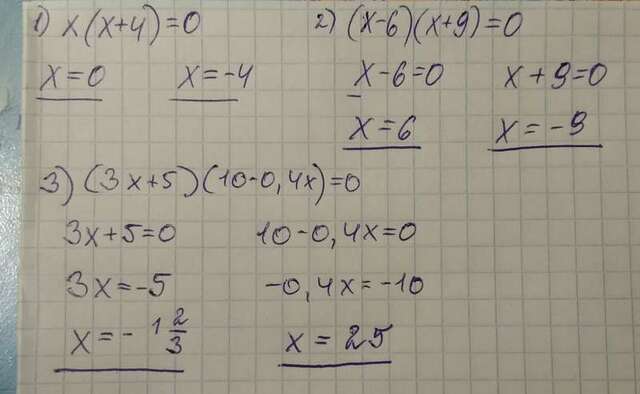 1) x(x+4)=0
x=0 x=-4
2) (x-6)(x+9)=0
x-6=0 x+9=0
x=6 x=-9
3) (3x+5)(10-0,4x)=0
3x+5=0 10-0,4x=0
3x=-5 -0,4x=-10
x=-1 2/3 x=25